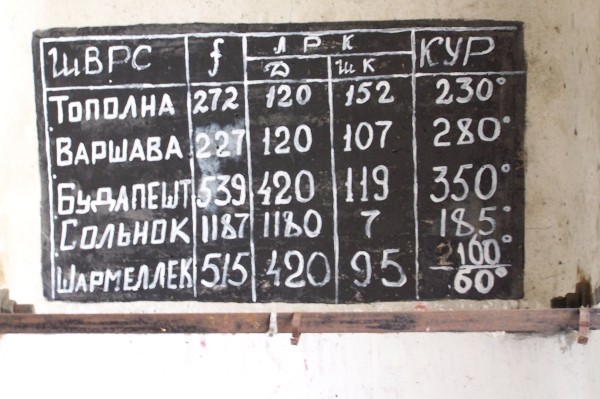 ШВРС f ЛРК КУР
Д ШК
ТОПОЛНА 272 120 152 230°
ВАРШАВА 227 120 107 280°
БУДАПЕШТ 539 420 119 350°
СОЛЬНОК 1187 1180 7 185°
ШАРМЕЛЛЕК 515 420 95 60°